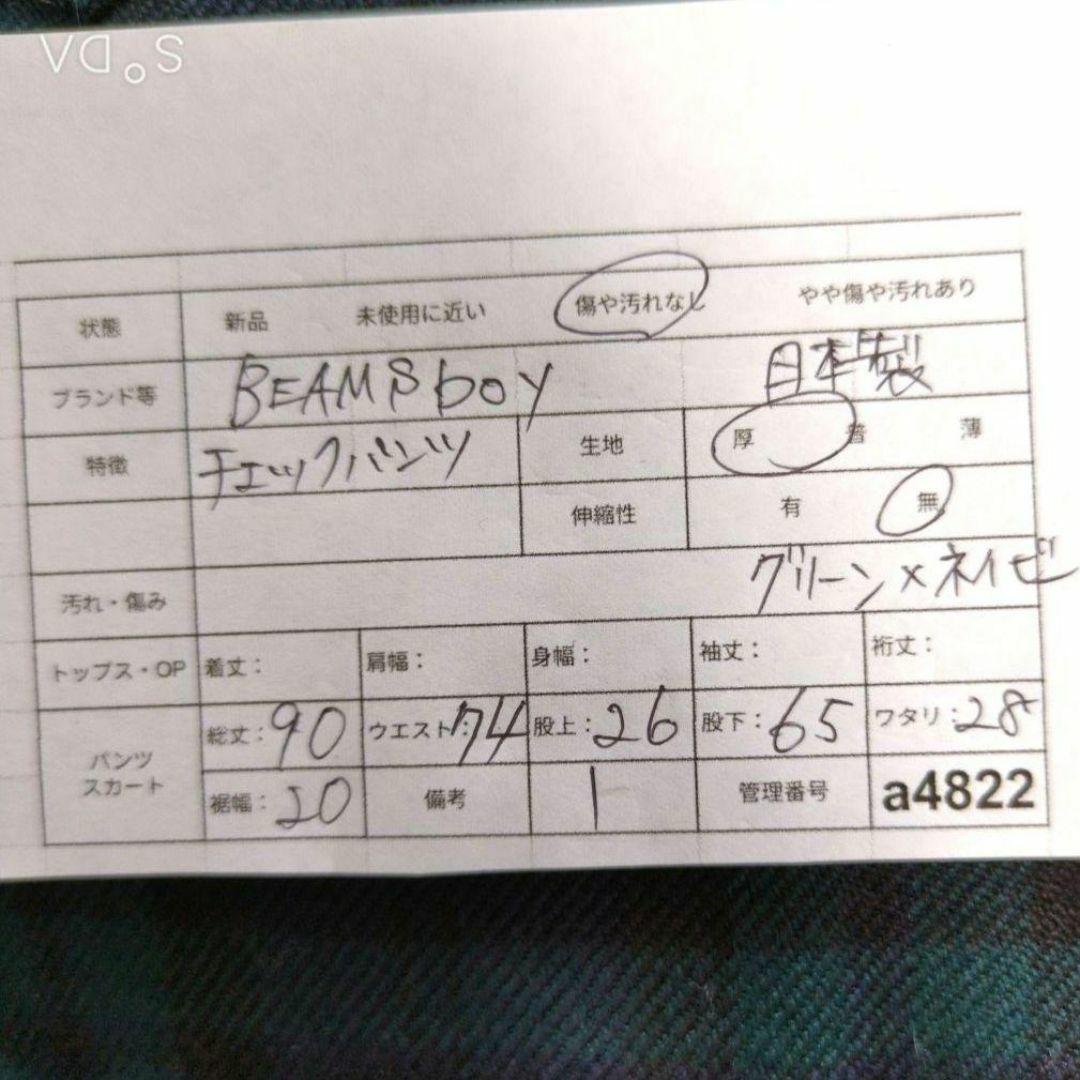 VQ.S
状態 新品 未使用に近い 傷や汚れなし やや傷や汚れあり
ブランド等 BEAMS boy 日本製
特徴 チェックパンツ 生地 厚 普 薄
伸縮性 有 無
グリーン×ネイビ
汚れ・傷み
トップス・OP 着丈： 肩幅： 身幅： 袖丈： 裄丈：
パンツ スカート 総丈：90 ウエスト：74 股上：26 股下：65 ワタリ：28
裾幅：20 備考 1 管理番号 a4822